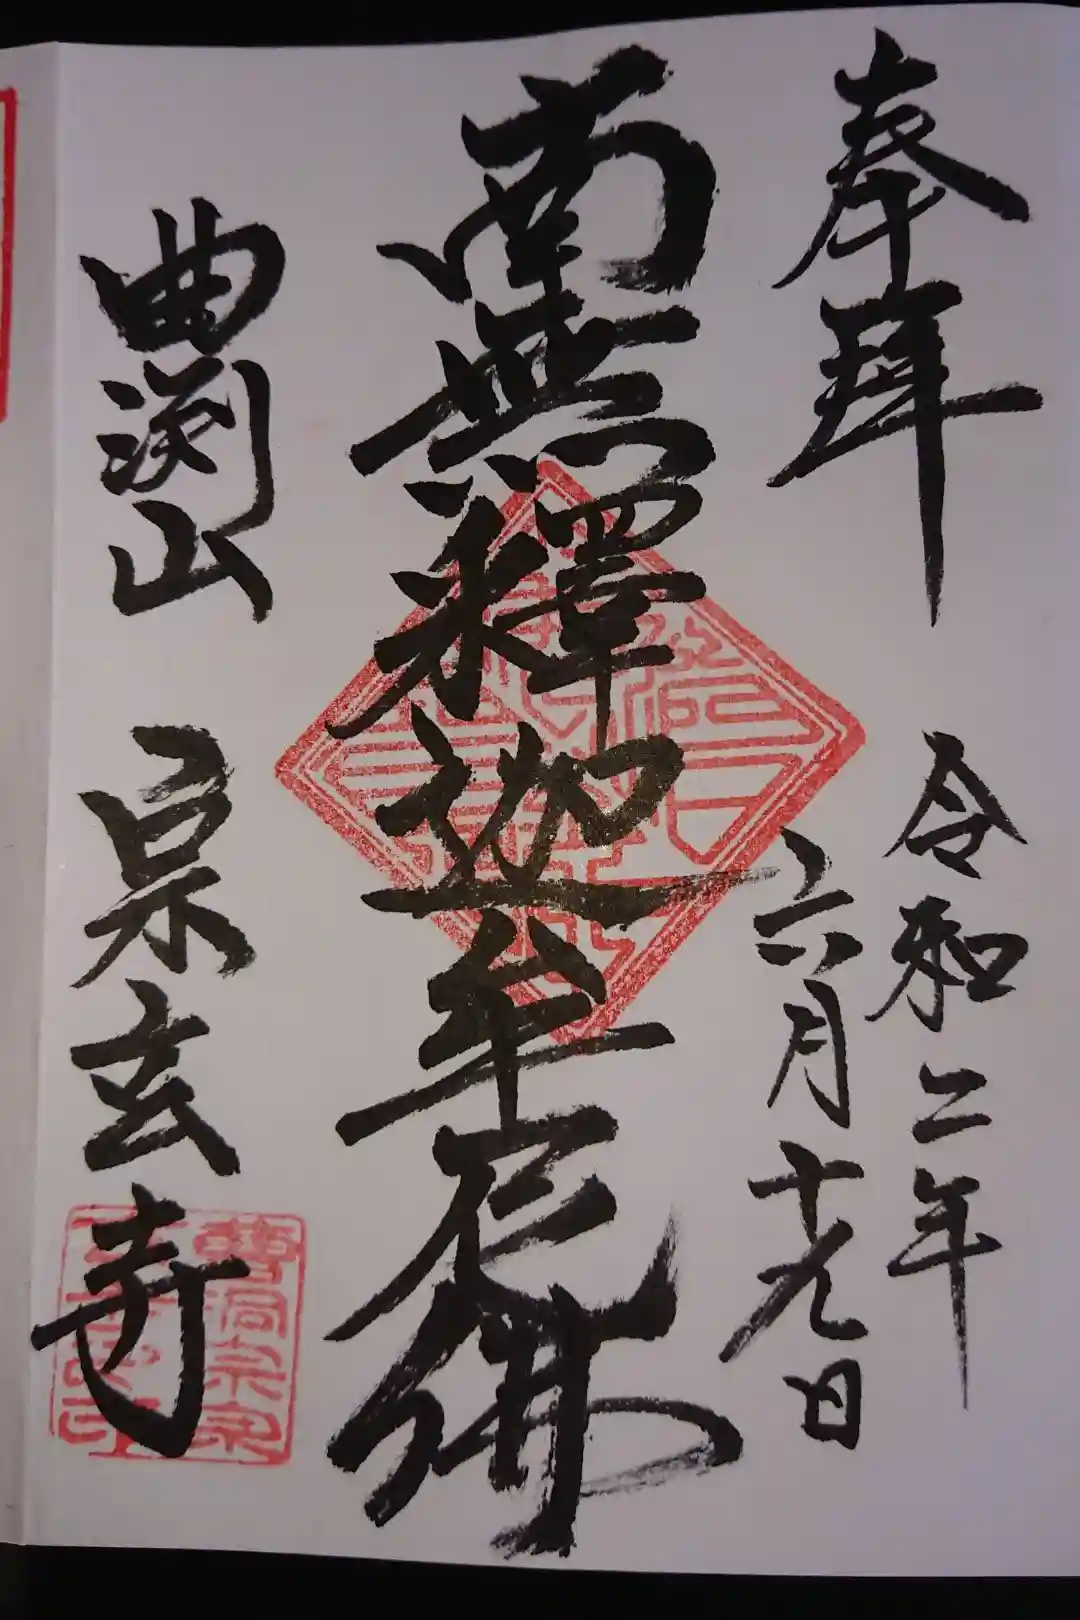 奉拜
令和二年
六月十九日
南無釋迦牟尼佛
曲渕山 宗玄寺
曹洞宗宗